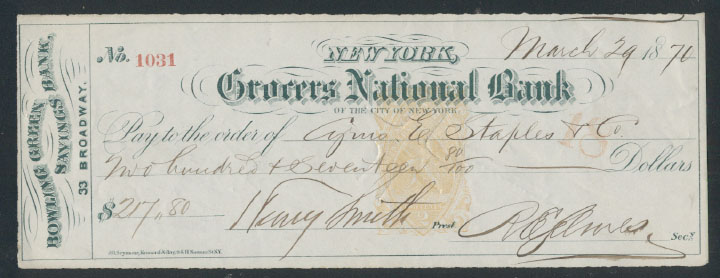 BOWLING GREEN
SAVINGS BANK,
33 BROADWAY.
No. 1031
NEW YORK, March 29 1871
Grocers National Bank
OF THE CITY OF NEW YORK
Pay to the order of Cyrus E. Staples & Co.
Two hundred & Seventeen 80/100 Dollars
$217.80
Henry Smith Prest
Secy.